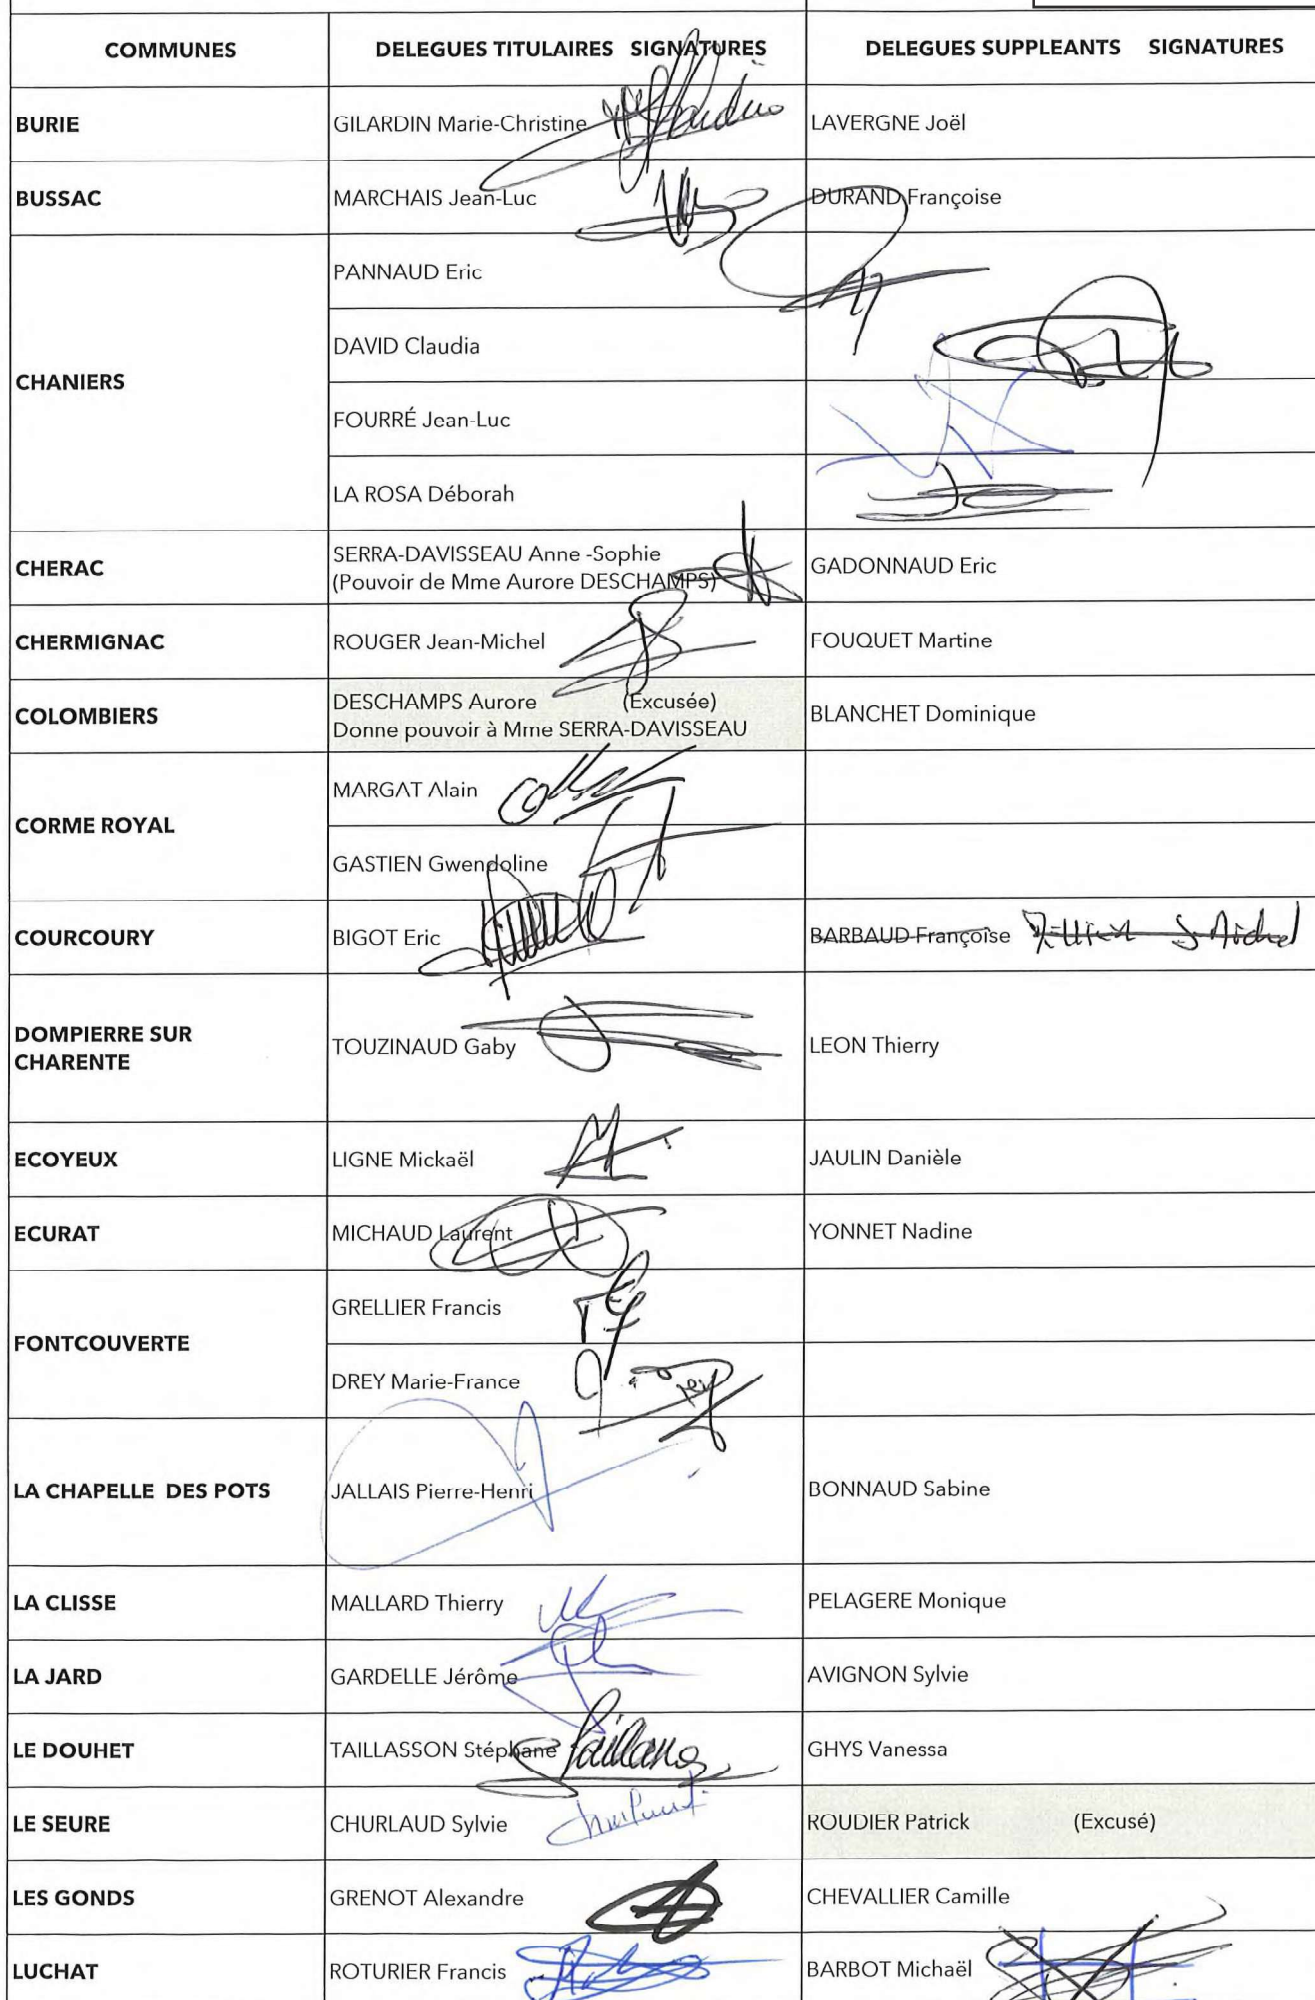 COMMUNES DELEGUES TITULAIRES SIGNATURES DELEGUES SUPPLEANTS SIGNATURES
BURIE GILARDIN Marie-Christine LAVERGNE Joël
BUSSAC MARCHAIS Jean-Luc DURAND Françoise
PANNAUD Eric
DAVID Claudia
CHANIERS
FOURRÉ Jean-Luc
LA ROSA Déborah
SERRA-DAVISSEAU Anne -Sophie
CHERAC GADONNAUD Eric
(Pouvoir de Mme Aurore DESCHAMPS)
CHERMIGNAC ROUGER Jean-Michel FOUQUET Martine
DESCHAMPS Aurore (Excusée)
COLOMBIERS BLANCHET Dominique
Donne pouvoir à Mme SERRA-DAVISSEAU
MARGAT Alain
CORME ROYAL
GASTIEN Gwendoline
COURCOURY BIGOT Eric BARBAUD Françoise
DOMPIERRE SUR
CHARENTE TOUZINAUD Gaby LEON Thierry
ECOYEUX LIGNE Mickaël JAULIN Danièle
ECURAT MICHAUD Laurent YONNET Nadine
GRELLIER Francis
FONTCOUVERTE
DREY Marie-France
LA CHAPELLE DES POTS JALLAIS Pierre-Henri BONNAUD Sabine
LA CLISSE MALLARD Thierry PELAGERE Monique
LA JARD GARDELLE Jérôme AVIGNON Sylvie
LE DOUHET TAILLASSON Stéphane GHYS Vanessa
LE SEURE CHURLAUD Sylvie ROUDIER Patrick (Excusé)
LES GONDS GRENOT Alexandre CHEVALLIER Camille
LUCHAT ROTURIER Francis BARBOT Michaël